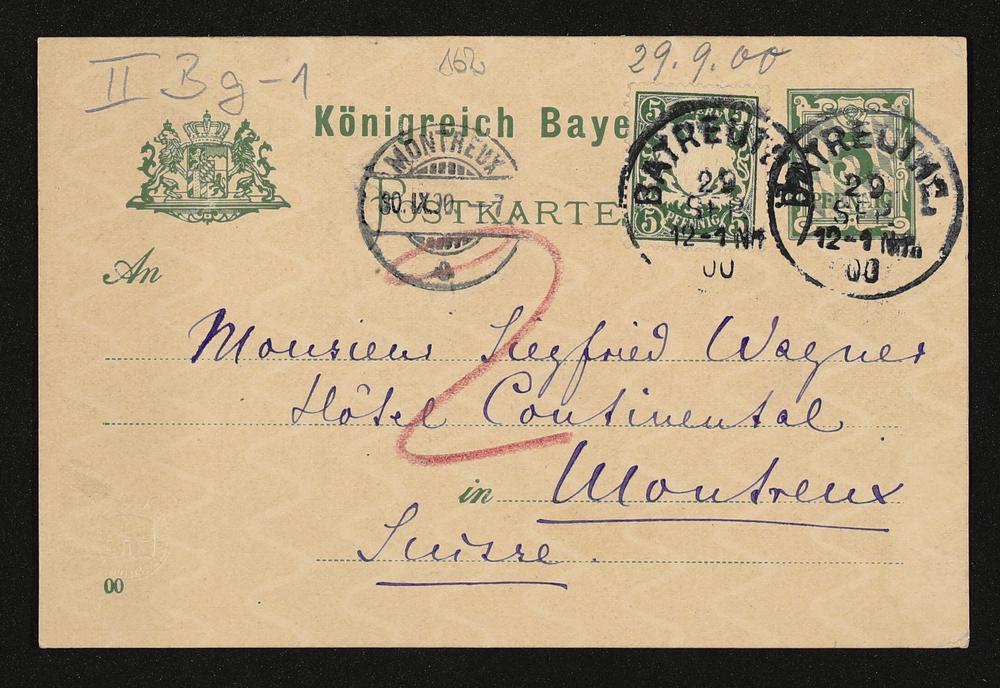 II Bg-1
162
29.9.00
Königreich Baye
POSTKARTE
MONTREUX
30.IX.00 - 7
5 5
5 PFENNIG 5
BAYREUTH
29
SEP
12-1 Nm
00
BAYREUTH
29
SEP
12-1 Nm
00
An
2
Monsieur Siegfried Wagner
Hôtel Continental
in Montreux
Suisse.
00